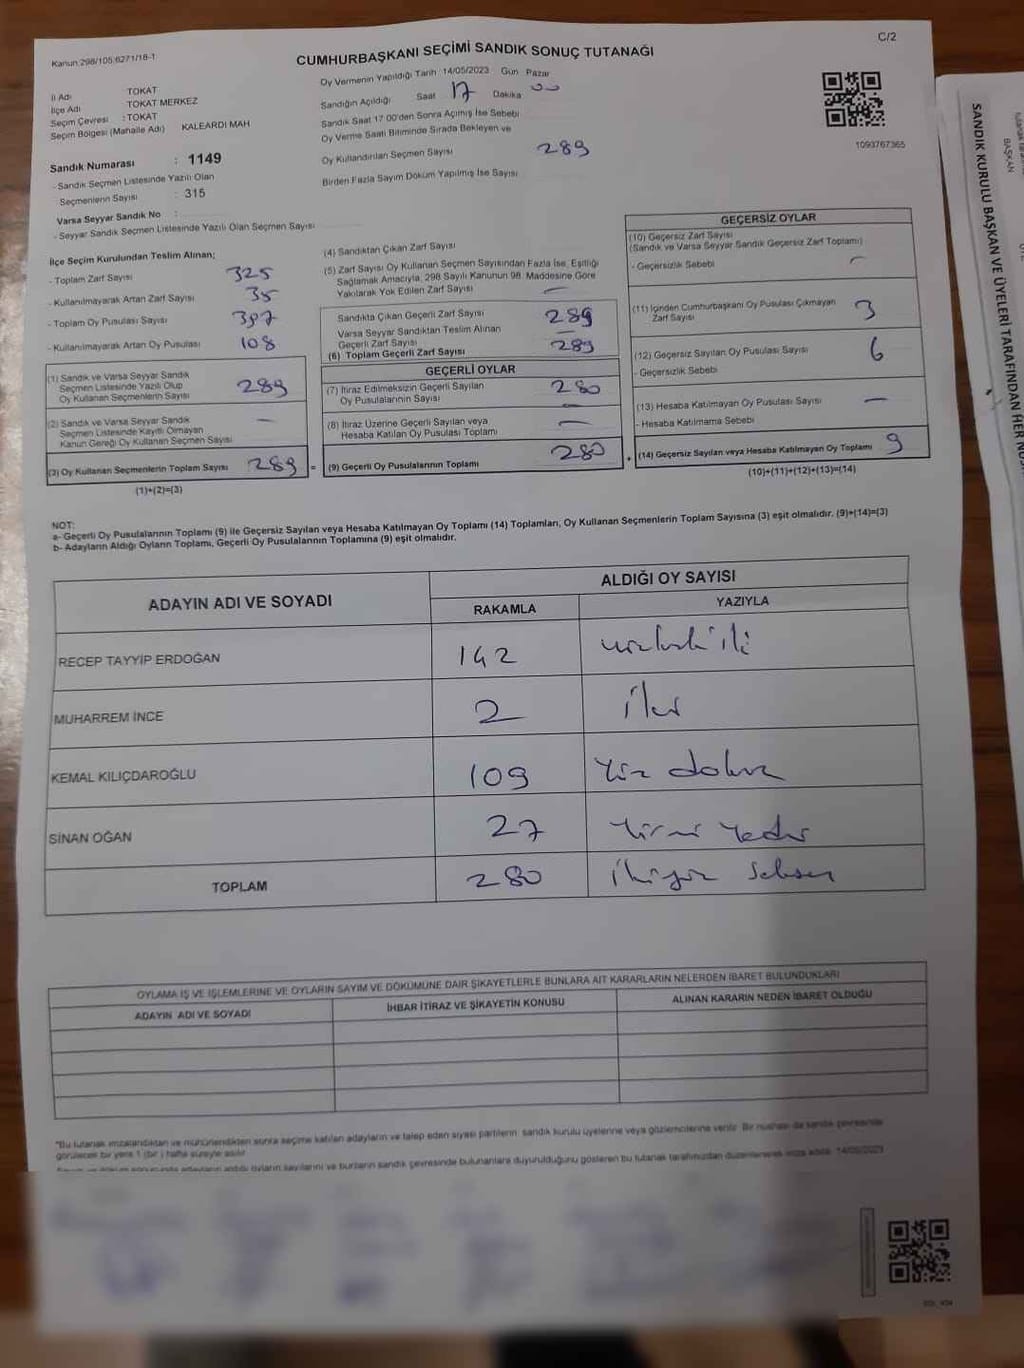 C/2
Kanun:298/105,6271/18-1
CUMHURBAŞKANI SEÇİMİ SANDIK SONUÇ TUTANAĞI
İl Adı TOKAT
İlçe Adı TOKAT MERKEZ
Seçim Çevresi : TOKAT
Seçim Bölgesi (Mahalle Adı) KALEARDI MAH
Sandık Numarası : 1149
- Sandık Seçmen Listesinde Yazılı Olan
Seçmenlerin Sayısı : 315
Varsa Seyyar Sandık No :
- Seyyar Sandık Seçmen Listesinde Yazılı Olan Seçmen Sayısı
Oy Vermenin Yapıldığı Tarih :14/05/2023 Gün Pazar
Sandığın Açıldığı Saat 17 Dakika 00
Sandık Saat 17:00'den Sonra Açımış İse Sebebi
Oy Verme Saati Bitiminde Sırada Bekleyen ve
Oy Kullandırılan Seçmen Sayısı 289
Birden Fazla Sayım Döküm Yapılmış İse Sayısı
1093767365
İlçe Seçim Kurulundan Teslim Alınan;
- Toplam Zarf Sayısı 325
- Kullanılmayarak Artan Zarf Sayısı 35
- Toplam Oy Pusulası Sayısı 397
- Kullanılmayarak Artan Oy Pusulası 108
(1) Sandık ve Varsa Seyyar Sandık
Seçmen Listesinde Yazılı Olup
Oy Kullanan Seçmenlerin Sayısı 289
(2) Sandık ve Varsa Seyyar Sandık
Seçmen Listesinde Kayıtlı Olmayan
Kanun Gereği Oy Kullanan Seçmen Sayısı —
(3) Oy Kullanan Seçmenlerin Toplam Sayısı 289 =
(1)+(2)=(3)
(4) Sandıktan Çıkan Zarf Sayısı
(5) Zarf Sayısı Oy Kullanan Seçmen Sayısından Fazla İse, Eşitliği
Sağlamak Amacıyla, 298 Sayılı Kanunun 98. Maddesine Göre
Yakılarak Yok Edilen Zarf Sayısı —
Sandıkta Çıkan Geçerli Zarf Sayısı 289
Varsa Seyyar Sandıktan Teslim Alınan
Geçerli Zarf Sayısı —
(6) Toplam Geçerli Zarf Sayısı 289
GEÇERLİ OYLAR
(7) İtiraz Edilmeksizin Geçerli Sayılan
Oy Pusulalarının Sayısı 280
(8) İtiraz Üzerine Geçerli Sayılan veya
Hesaba Katılan Oy Pusulası Toplamı —
(9) Geçerli Oy Pusulalarının Toplamı 280 +
GEÇERSİZ OYLAR
(10) Geçersiz Zarf Sayısı
(Sandık ve Varsa Seyyar Sandık Geçersiz Zarf Toplamı) —
- Geçersizlik Sebebi
(11) İçinden Cumhurbaşkanı Oy Pusulası Çıkmayan
Zarf Sayısı 3
(12) Geçersiz Sayılan Oy Pusulası Sayısı 6
- Geçersizlik Sebebi
(13) Hesaba Katılmayan Oy Pusulası Sayısı —
- Hesaba Katılmama Sebebi
(14) Geçersiz Sayılan veya Hesaba Katılmayan Oy Toplamı 9
(10)+(11)+(12)+(13)=(14)
NOT:
a- Geçerli Oy Pusulalarının Toplamı (9) ile Geçersiz Sayılan veya Hesaba Katılmayan Oy Toplamı (14) Toplamları, Oy Kullanan Seçmenlerin Toplam Sayısına (3) eşit olmalıdır. (9)+(14)=(3)
b- Adayların Aldığı Oyların Toplamı, Geçerli Oy Pusulalarının Toplamına (9) eşit olmalıdır.
ADAYIN ADI VE SOYADI ALDIĞI OY SAYISI
RAKAMLA YAZIYLA
RECEP TAYYİP ERDOĞAN 142
MUHARREM İNCE 2 iki
KEMAL KILIÇDAROĞLU 109 Yüz dokuz
SİNAN OĞAN 27 Yirmi Yedi
TOPLAM 280 ikiyüz seksen
OYLAMA İŞ VE İŞLEMLERİNE VE OYLARIN SAYIM VE DÖKÜMÜNE DAİR ŞİKAYETLERLE BUNLARA AİT KARARLARIN NELERDEN İBARET BULUNDUKLARI
ADAYIN ADI VE SOYADI İHBAR İTİRAZ VE ŞİKAYETİN KONUSU ALINAN KARARIN NEDEN İBARET OLDUĞU
"Bu tutanak imzalandıktan ve mühürlendikten sonra seçime katılan adayların ve talep eden siyasi partilerin sandık kurulu üyelerine veya gözlemcilerine verilir. Bir nüshası da sandık çevresinde
görülecek bir yere 1 (bir) hafta süreyle asılır.
oyların sayılarını ve bunların sandık çevresinde bulunanlara duyurulduğunu gösteren bu tutanak tarafımızdan düzenlenerek imza edildi. 14/05/2023
SANDIK KURULU BAŞKAN VE ÜYELERİ TARAFINDAN HER
BAŞKAN